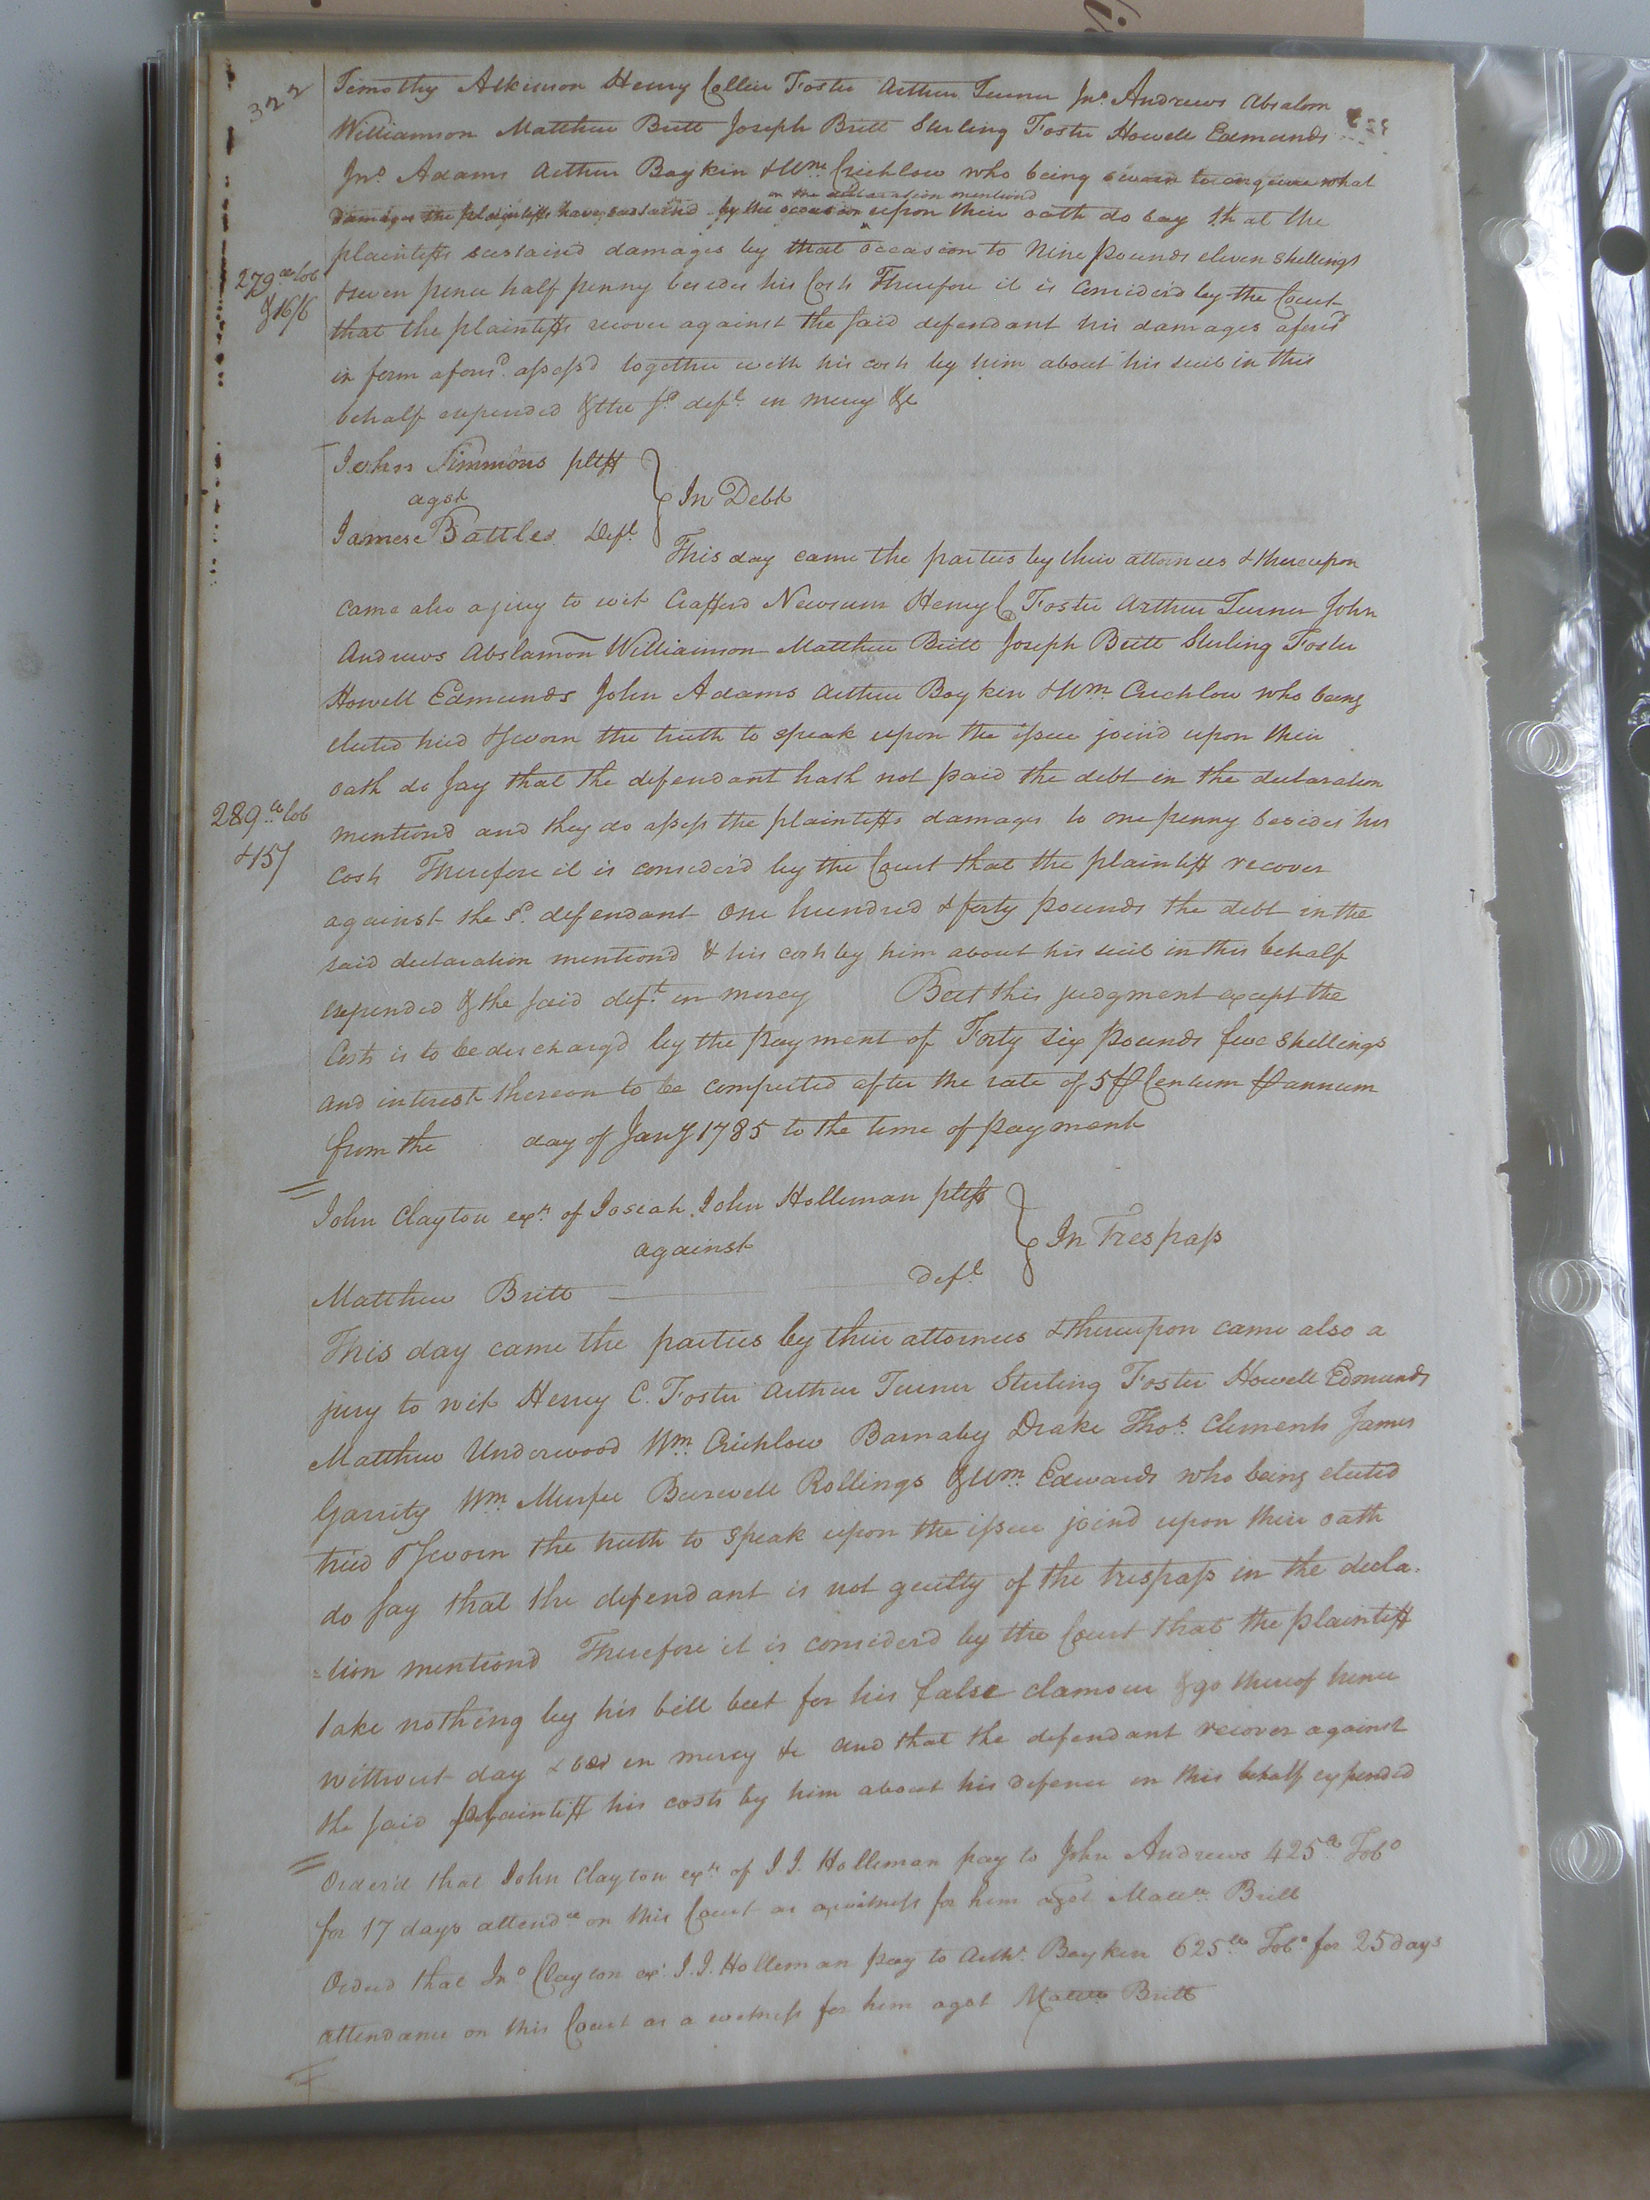 322
Timothy Atkinson Henry Collier Foster Arthur Turner Jno. Andrews Absalom
Williamson Matthew Britt Joseph Britt Sterling Foster Howell Edmunds
Jno. Adams Arthur Boykin & Wm. Crichlow who being sworn to enquire what
in the declaration mentiond
damages the plaintiffs have sustaind by the occasion upon their oath do say that the
plaintiffs sustaind damages by that occasion to Nine pounds eleven shillings
279 lb tob
& 16/6
& seven pence half penny besides his Costs Therefore it is Considerd by the Court
that the plaintiffs recover against the said defendant his damages aforsd
in form aforsd. assessd together with his costs by him about his suit in this
behalf expended & the sd. deft. in mercy &c
John Simmons pltff
agst
In Debt
James Battles Deft.
This day came the parties by their attornies & thereupon
came also a jury to wit Crafford Newsum Henry C Foster Arthur Turner John
Andrews Abslamon Williamson Matthew Britt Joseph Britt Sterling Foster
Howell Edmunds John Adams Arthur Boykin & Wm Crichlow who being
elected tried & sworn the truth to speak upon the issue joind upon their
oath do say that the defendant hath not paid the debt in the declaration
289 lb tob
& 15/
mentiond and they do assess the plaintiffs damages to one penny besides his
Costs Therefore it is considerd by the Court that the plaintiff recover
against the sd. defendant One hundred & forty pounds the debt in the
said declaration mentiond & his costs by him about his suit in this behalf
expended & the said deft. in mercy But this judgment except the
Costs is to be dischargd by the payment of Forty six pounds five shillings
and interest thereon to be computed after the rate of 5 ₱ Centum ₱ annum
from the day of Jany 1785 to the time of payment
John Clayton exr. of Josiah John Holleman pltff
against
In Trespass
Matthew Britt deft.
This day came the parties by their attornies & thereupon came also a
jury to wit Henry C. Foster Arthur Turner Sterling Foster Howell Edmunds
Matthew Underwood Wm. Crichlow Barnaby Drake Thos. Clements James
Garrity Wm. Murfee Burwell Rollings & Wm. Edwards who being elected
tried & sworn the truth to speak upon the issue joind upon their oath
do say that the defendant is not guilty of the trespass in the decla-
=tion mentiond Therefore it is considerd by the Court that the plaintiff
take nothing by his bill but for his false clamour & go thereof hence
without day & be in mercy &c and that the defendant recover against
the said plaintiff his costs by him about his defence in this behalf expended
Orderd that John Clayton exr. of J. J. Holleman pay to John Andrews 425 lb Tobo
for 17 days attendce on this Court as a witness for him agst Mattw. Britt
Orderd that Jno Clayton exr. J. J. Holleman pay to Arthr. Boykin 625 lb Tobo for 25 days
attendance on this Court as a witness for him agst Mattw Britt